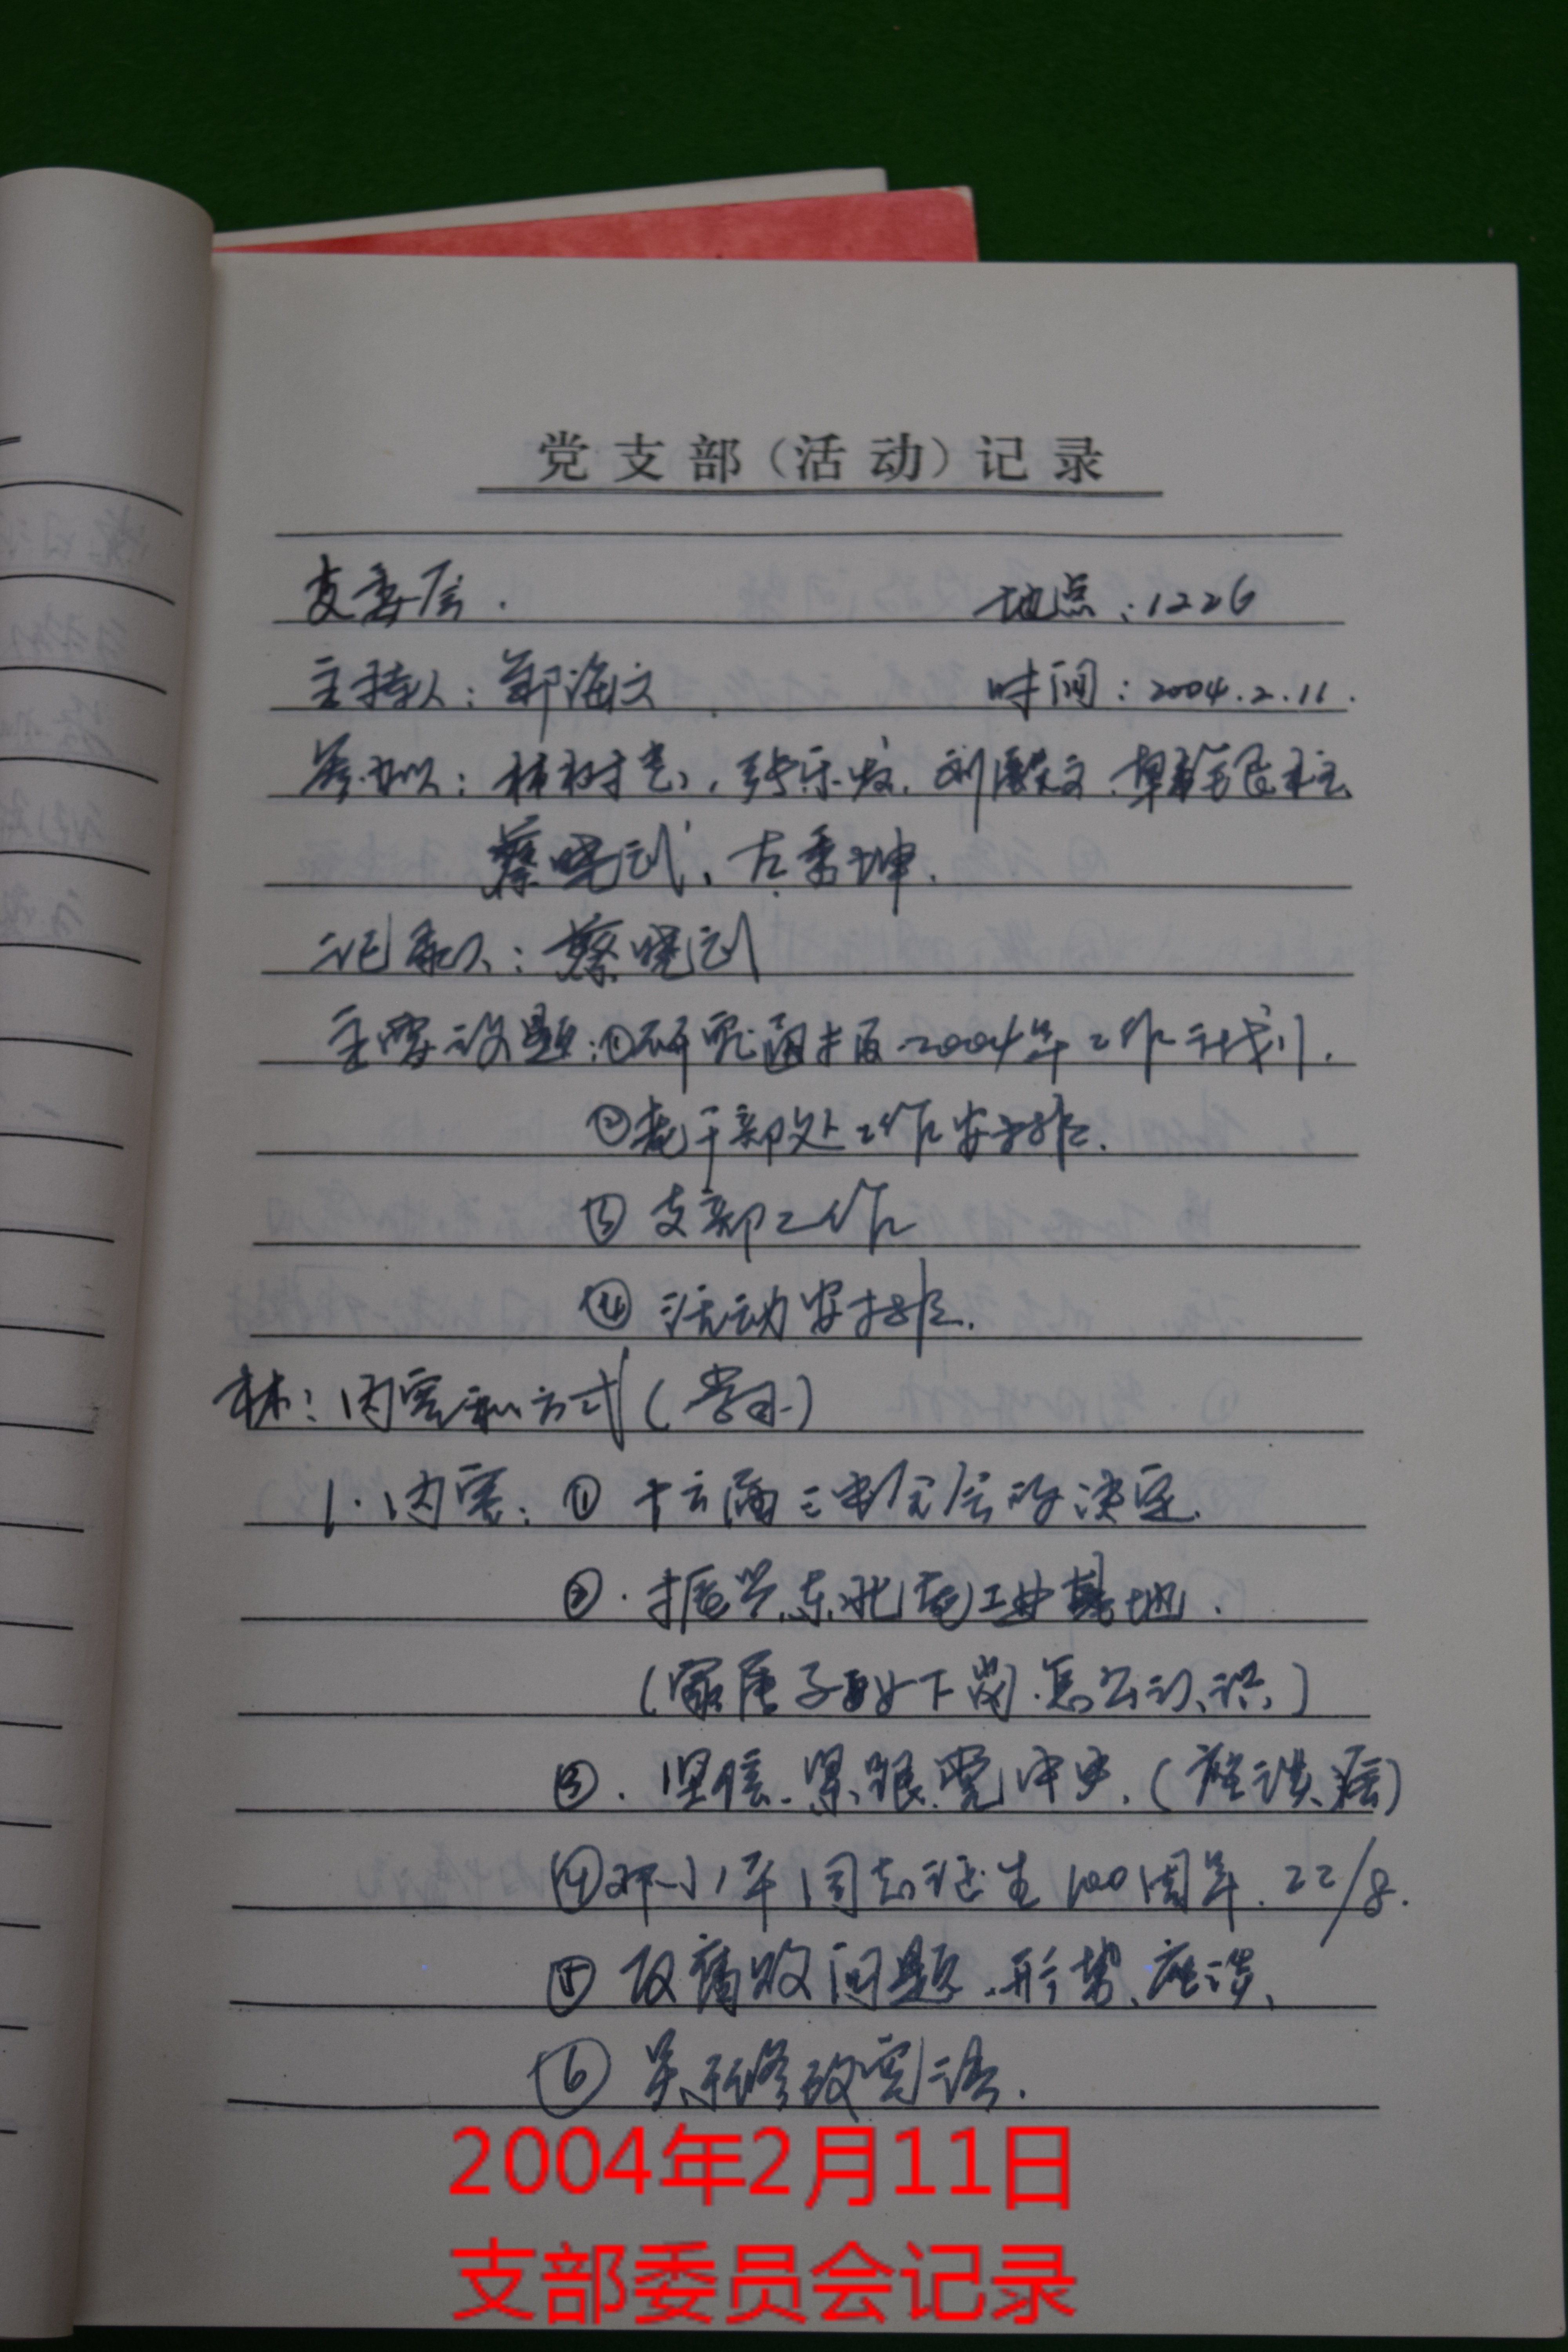 党支部（活动）记录
支委会. 地点：1226
主持人：郑海文 时间：2004.2.11.
参加人：林树 张乐 刘 文
蔡晓武、左秀坤.
记录人：蔡晓武
主要议题：①研究 2004年工作计划.
②老干部处工作安排.
③支部工作
④活动安排.
林：内容和方式（学习）
1.内容：①十六届三中全会的决定.
②.振兴东北老工业基地.
（家属子女下岗.怎么认识）
③.坚信.紧跟党中央.（座谈会）
④邓小平同志诞生100周年.22/8.
⑤反腐败问题.形势、座谈、
⑥关于修改宪法.
2004年2月11日
支部委员会记录